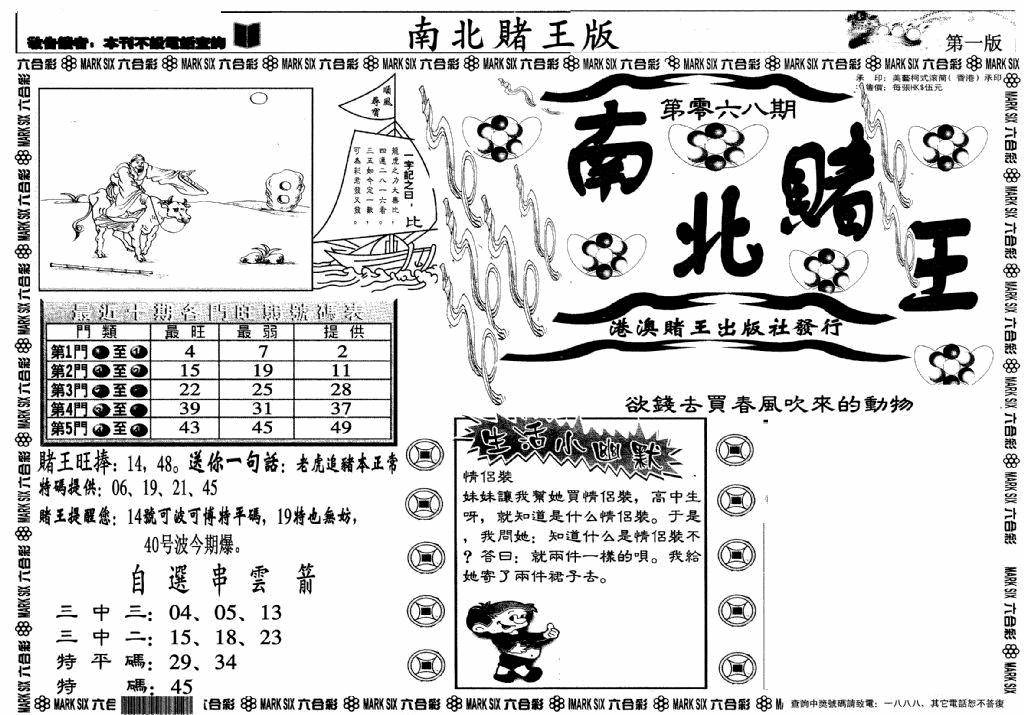 敬告讀者：本刊不設電話查詢
南北賭王版
第一版
六合彩 MARK SIX 六合彩 MARK SIX 六合彩 MARK SIX 六合彩 MARK SIX 六合彩 MARK SIX 六合彩 MARK SIX 六合彩 MARK SIX 六合彩 MARK SIX 六合彩 MARK SIX 六合彩 MARK SIX
承 印：美藝柯式滾筒(香港)承印
售價：每張HK$伍元
第零六八期
南北賭王
港澳賭王出版社發行
順風尋寶
一字記之曰：比
龍虎之力大無比，
四通二八一六看。
三五如今定一數，
可為彩君發又發。
最近十期各門旺與號碼表
門類 最旺 最弱 提供
第1門 至 4 7 2
第2門 至 15 19 11
第3門 至 22 25 28
第4門 至 39 31 37
第5門 至 43 45 49
賭王旺捧：14，48。送你一句話：老虎追豬本正常
特碼提供：06、19、21、45
賭王提醒您：14號可波可博特平碼，19特也無妨，
40号波今期爆。
自選串雲箭
三中三：04、05、13
三中二：15、18、23
特平碼：29、34
特碼：45
欲錢去買春風吹來的動物
生活小幽默
情侶裝
妹妹讓我幫她買情侶裝，高中生
呀，就知道是什么情侶裝。于是
，我問她：知道什么是情侶裝不
？答曰：就兩件一樣的唄。我給
她寄了兩件裙子去。
六合彩 MARK SIX 六合彩 MARK SIX 六合彩 MARK SIX 六合彩 MARK SIX 六合彩 MARK SIX 六合彩
查詢中獎號碼請致電：一八八八、其它電話恕不答復